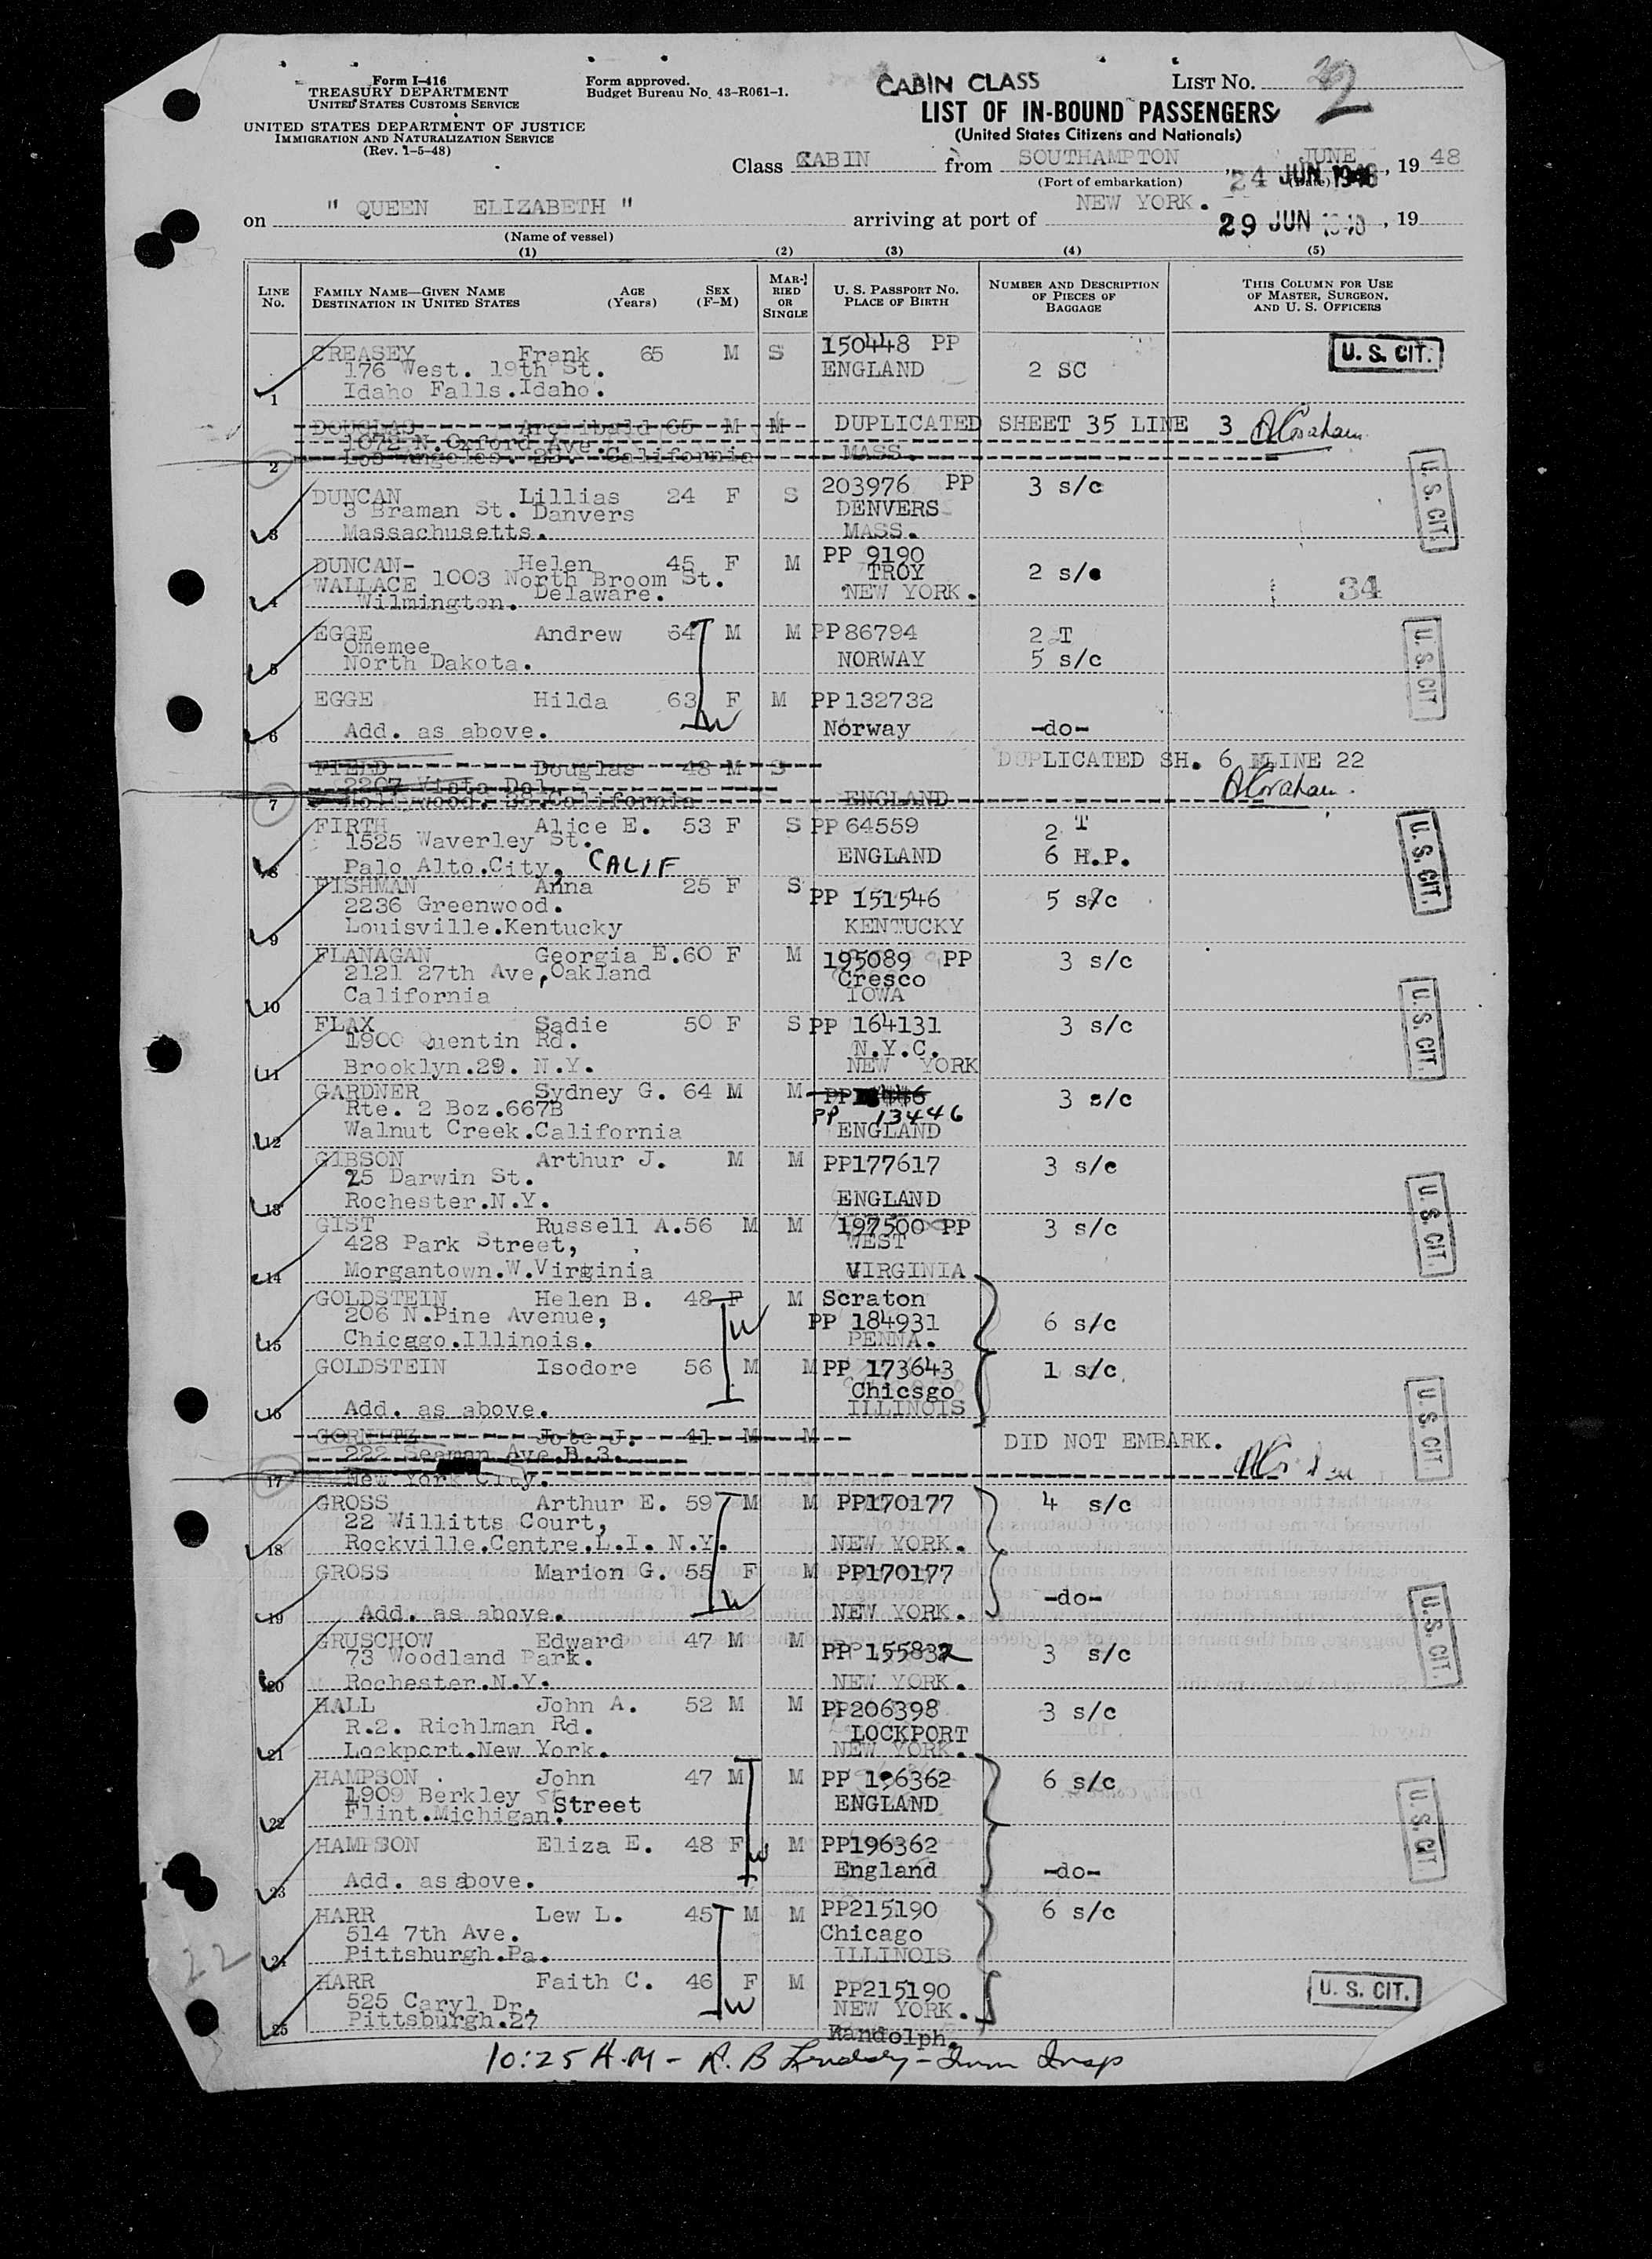 Form I-416
TREASURY DEPARTMENT
UNITED STATES CUSTOMS SERVICE
UNITED STATES DEPARTMENT OF JUSTICE
IMMIGRATION AND NATURALIZATION SERVICE
(Rev. 1-5-48)
Form approved.
Budget Bureau No. 43-R061-1.
CABIN CLASS
LIST No. 2
LIST OF IN-BOUND PASSENGERS
(United States Citizens and Nationals)
Class CABIN from SOUTHAMPTON, JUNE 24 JUN 1948, 19 48
(Port of embarkation) (Date)
on " QUEEN ELIZABETH " arriving at port of NEW YORK. 29 JUN 1948, 19
(Name of vessel)
(1) (2) (3) (4) (5)
LINE No. FAMILY NAME—GIVEN NAME DESTINATION IN UNITED STATES AGE (Years) SEX (F-M) MARRIED OR SINGLE U. S. PASSPORT No. PLACE OF BIRTH NUMBER AND DESCRIPTION OF PIECES OF BAGGAGE THIS COLUMN FOR USE OF MASTER, SURGEON, AND U. S. OFFICERS
CREASEY Frank 65 M S 150448 PP U. S. CIT.
176 West. 19th St. ENGLAND 2 SC
1 Idaho Falls.Idaho.
DOUGLAS Archibald 65 M M DUPLICATED SHEET 35 LINE 3 AGraham
1072 N. Oxford Ave.
2 Los Angeles. 29. California MASS.
DUNCAN Lillias 24 F S 203976 PP 3 s/c U. S. CIT.
3 Braman St. Danvers DENVERS
3 Massachusetts. MASS.
DUNCAN- Helen 45 F M PP 9190
WALLACE 1003 North Broom St. TROY 2 s/c 34
4 Wilmington. Delaware. NEW YORK.
EGGE Andrew 64 M M PP86794 2 T U. S. CIT
Omemee
5 North Dakota. NORWAY 5 s/c
EGGE Hilda 63 F M PP132732
6 Add. as above. W Norway -do-
FIELD Douglas 48 M S DUPLICATED SH. 6 LINE 22
2267 Vista Del
7 Hollywood. 28.California ENGLAND AGraham.
FIRTH Alice E. 53 F S PP 64559 2 T U. S. CIT.
1525 Waverley St.
8 Palo Alto.City, CALIF ENGLAND 6 H.P.
FISHMAN Anna 25 F S PP 151546 5 s/c
2236 Greenwood.
9 Louisville.Kentucky KENTUCKY
FLANAGAN Georgia E. 60 F M 195089 PP 3 s/c
2121 27th Ave,Oakland Cresco
10 California IOWA U. S. CIT.
FLAX Sadie 50 F S PP 164131 3 s/c
1900 Quentin Rd. N.Y.C.
11 Brooklyn.29. N.Y. NEW YORK
GARDNER Sydney G. 64 M M 3 s/c
Rte. 2 Boz.667B PP 13446
12 Walnut Creek.California ENGLAND
GIBSON Arthur J. M M PP177617 3 s/c
25 Darwin St. U. S. CIT.
13 Rochester.N.Y. ENGLAND
GIST Russell A.56 M M 197500 PP 3 s/c
428 Park Street, WEST
14 Morgantown.W.Virginia VIRGINIA
GOLDSTEIN Helen B. 48 F M Scraton
206 N.Pine Avenue, W PP 184931 6 s/c
15 Chicago.Illinois. PENNA.
GOLDSTEIN Isodore 56 M M PP 173643 1 s/c
Chicsgo
16 Add. as above. ILLINOIS U. S. CIT
GORNITZ Jote J. 41 M M DID NOT EMBARK.
222 Seaman Ave.B.3.
17 New York City.
GROSS Arthur E. 59 M M PP170177 4 s/c
22 Willitts Court,
18 Rockville.Centre.L.I. N.Y. NEW YORK.
GROSS Marion G. 55 F M PP170177
19 Add. as above. W NEW YORK. -do-
GRUSCHOW Edward 47 M M PP 155832 3 s/c U. S. CIT.
73 Woodland Park.
20 Rochester.N.Y. NEW YORK.
HALL John A. 52 M M PP206398 3 s/c
R.2. Richlman Rd. LOCKPORT
21 Lockport.New York. NEW YORK.
HAMPSON John 47 M M PP 196362 6 s/c
1909 Berkley Street ENGLAND U. S. CIT
22 Flint.Michigan.
HAMPSON Eliza E. 48 F M PP196362
23 Add. as above. W England -do-
HARR Lew L. 45 M M PP215190 6 s/c
514 7th Ave. Chicago
24 Pittsburgh.Pa. ILLINOIS
22
HARR Faith C. 46 F M PP215190 U. S. CIT.
525 Caryl Dr. W NEW YORK.
25 Pittsburgh.27
Randolph.
10:25 A.M - R. B Lindsay - Imm Insp